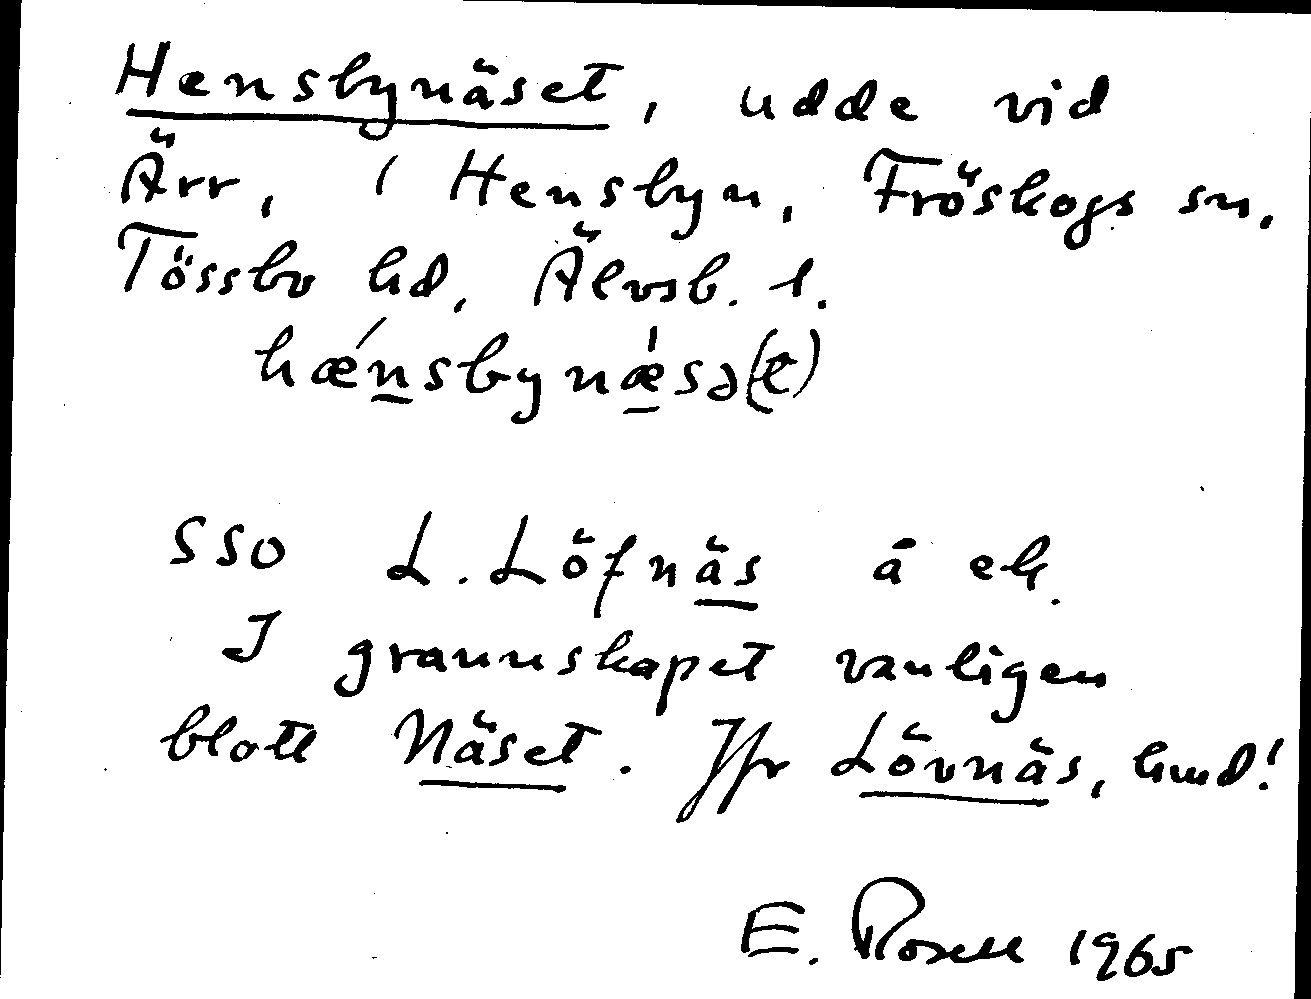 Hensbynäset, udde vid
Ärr, i Hensbyn, Fröskogs sn,
Tössbo hd, Älvsb. l.
hǽnsbynǽsə(t)
SSO L. Löfnäs å ek.
I grannskapet vanligen
blott Näset. Jfr Lövnäs, hmd!
E. Rosell 1965